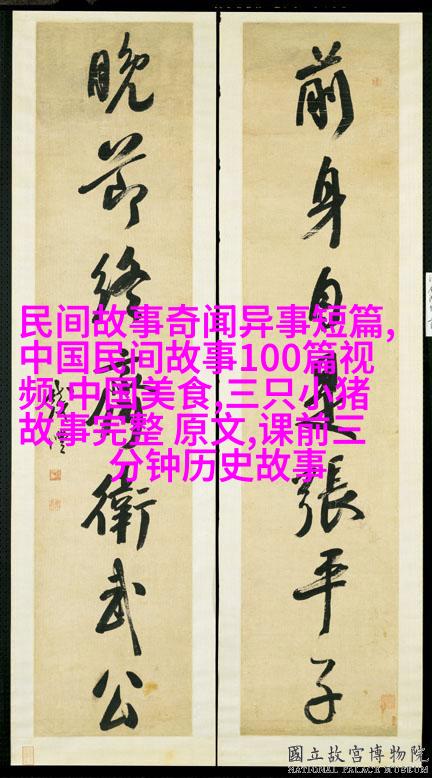 前身自是張平子
晚節終 衛武公
民间故事奇闻异事短篇,
中国民间故事100篇视
频,中国美食,三只小猪
故事完整 原文,课前三
分钟历史故事
國立故宮博物院
NATIONAL PALACE MUSEUM